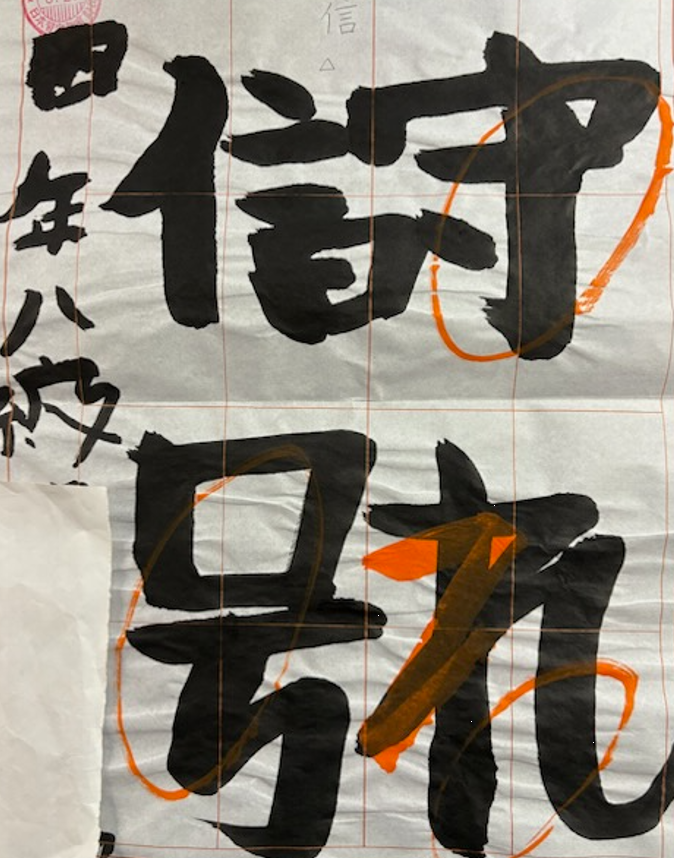 信
守礼
信号
四年 八級